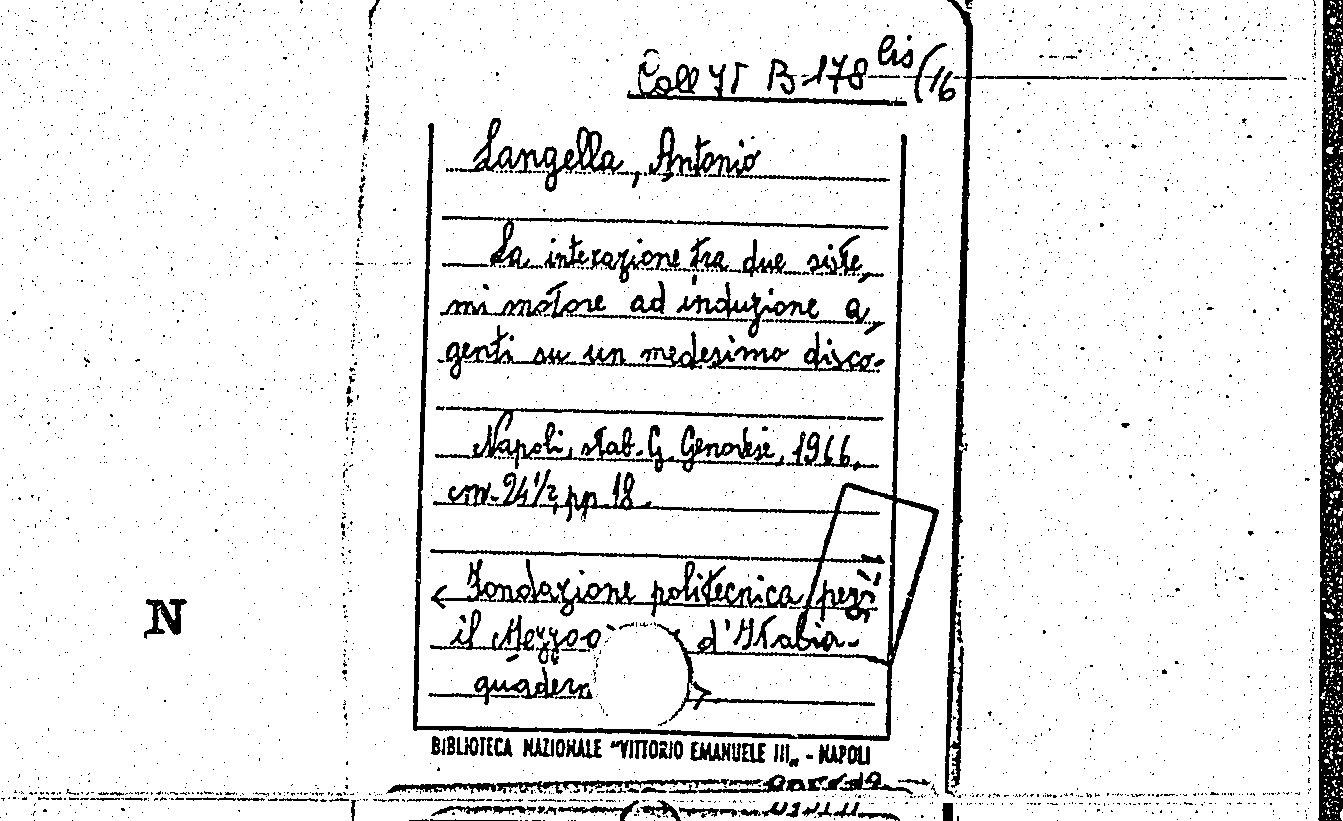 Coll. It B-178 bis (16
Langella, Antonio
La interazione tra due siste,
mi motore ad induzione a,
genti su un medesimo disco.
Napoli, stab. G. Genovese, 1966.
cm. 24½, pp 18.
< Fondazione politecnica per
il d'Italia.
>
N
BIBLIOTECA NAZIONALE "VITTORIO EMANUELE III„ - NAPOLI